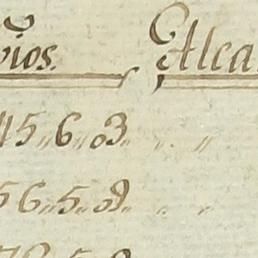 vios. Alca
45,,6,,03,, ,, ,,
56,,5,,09,, ,, ,,